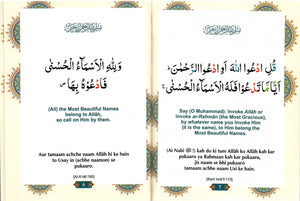 بِسْمِ اللهِ الرَّحْمٰنِ الرَّحِيْمِ
وَلِلّٰهِ الْاَسْمَآءُ الْحُسْنٰى
فَادْعُوْهُ بِهَا
(All) the Most Beautiful Names
belong to Allâh,
so call on Him by them.
Aur tamaam achche naam Allah hi ke hain
to Usay in (achhe naamon) se
pukaaro.
6
بِسْمِ اللهِ الرَّحْمٰنِ الرَّحِيْمِ
قُلِ ادْعُوا اللّٰهَ اَوِ ادْعُوا الرَّحْمٰنَ
اَيًّا مَّا تَدْعُوْا فَلَهُ الْاَسْمَآءُ الْحُسْنٰى
Say (O Muhammad): Invoke Allâh or
invoke ar-Rahmân (the Most Gracious),
by whatever name you invoke Him
(it is the same), to Him belong the
Most Beautiful Names.
(Ai Nabi ﷺ) kah do ki tum Allah ko Allah kah kar
pukaaro ya Rahmaan kah kar pukaaro,
jis naam se bhi pukaaro
tamaam achhe naam Usi ke hain.
7